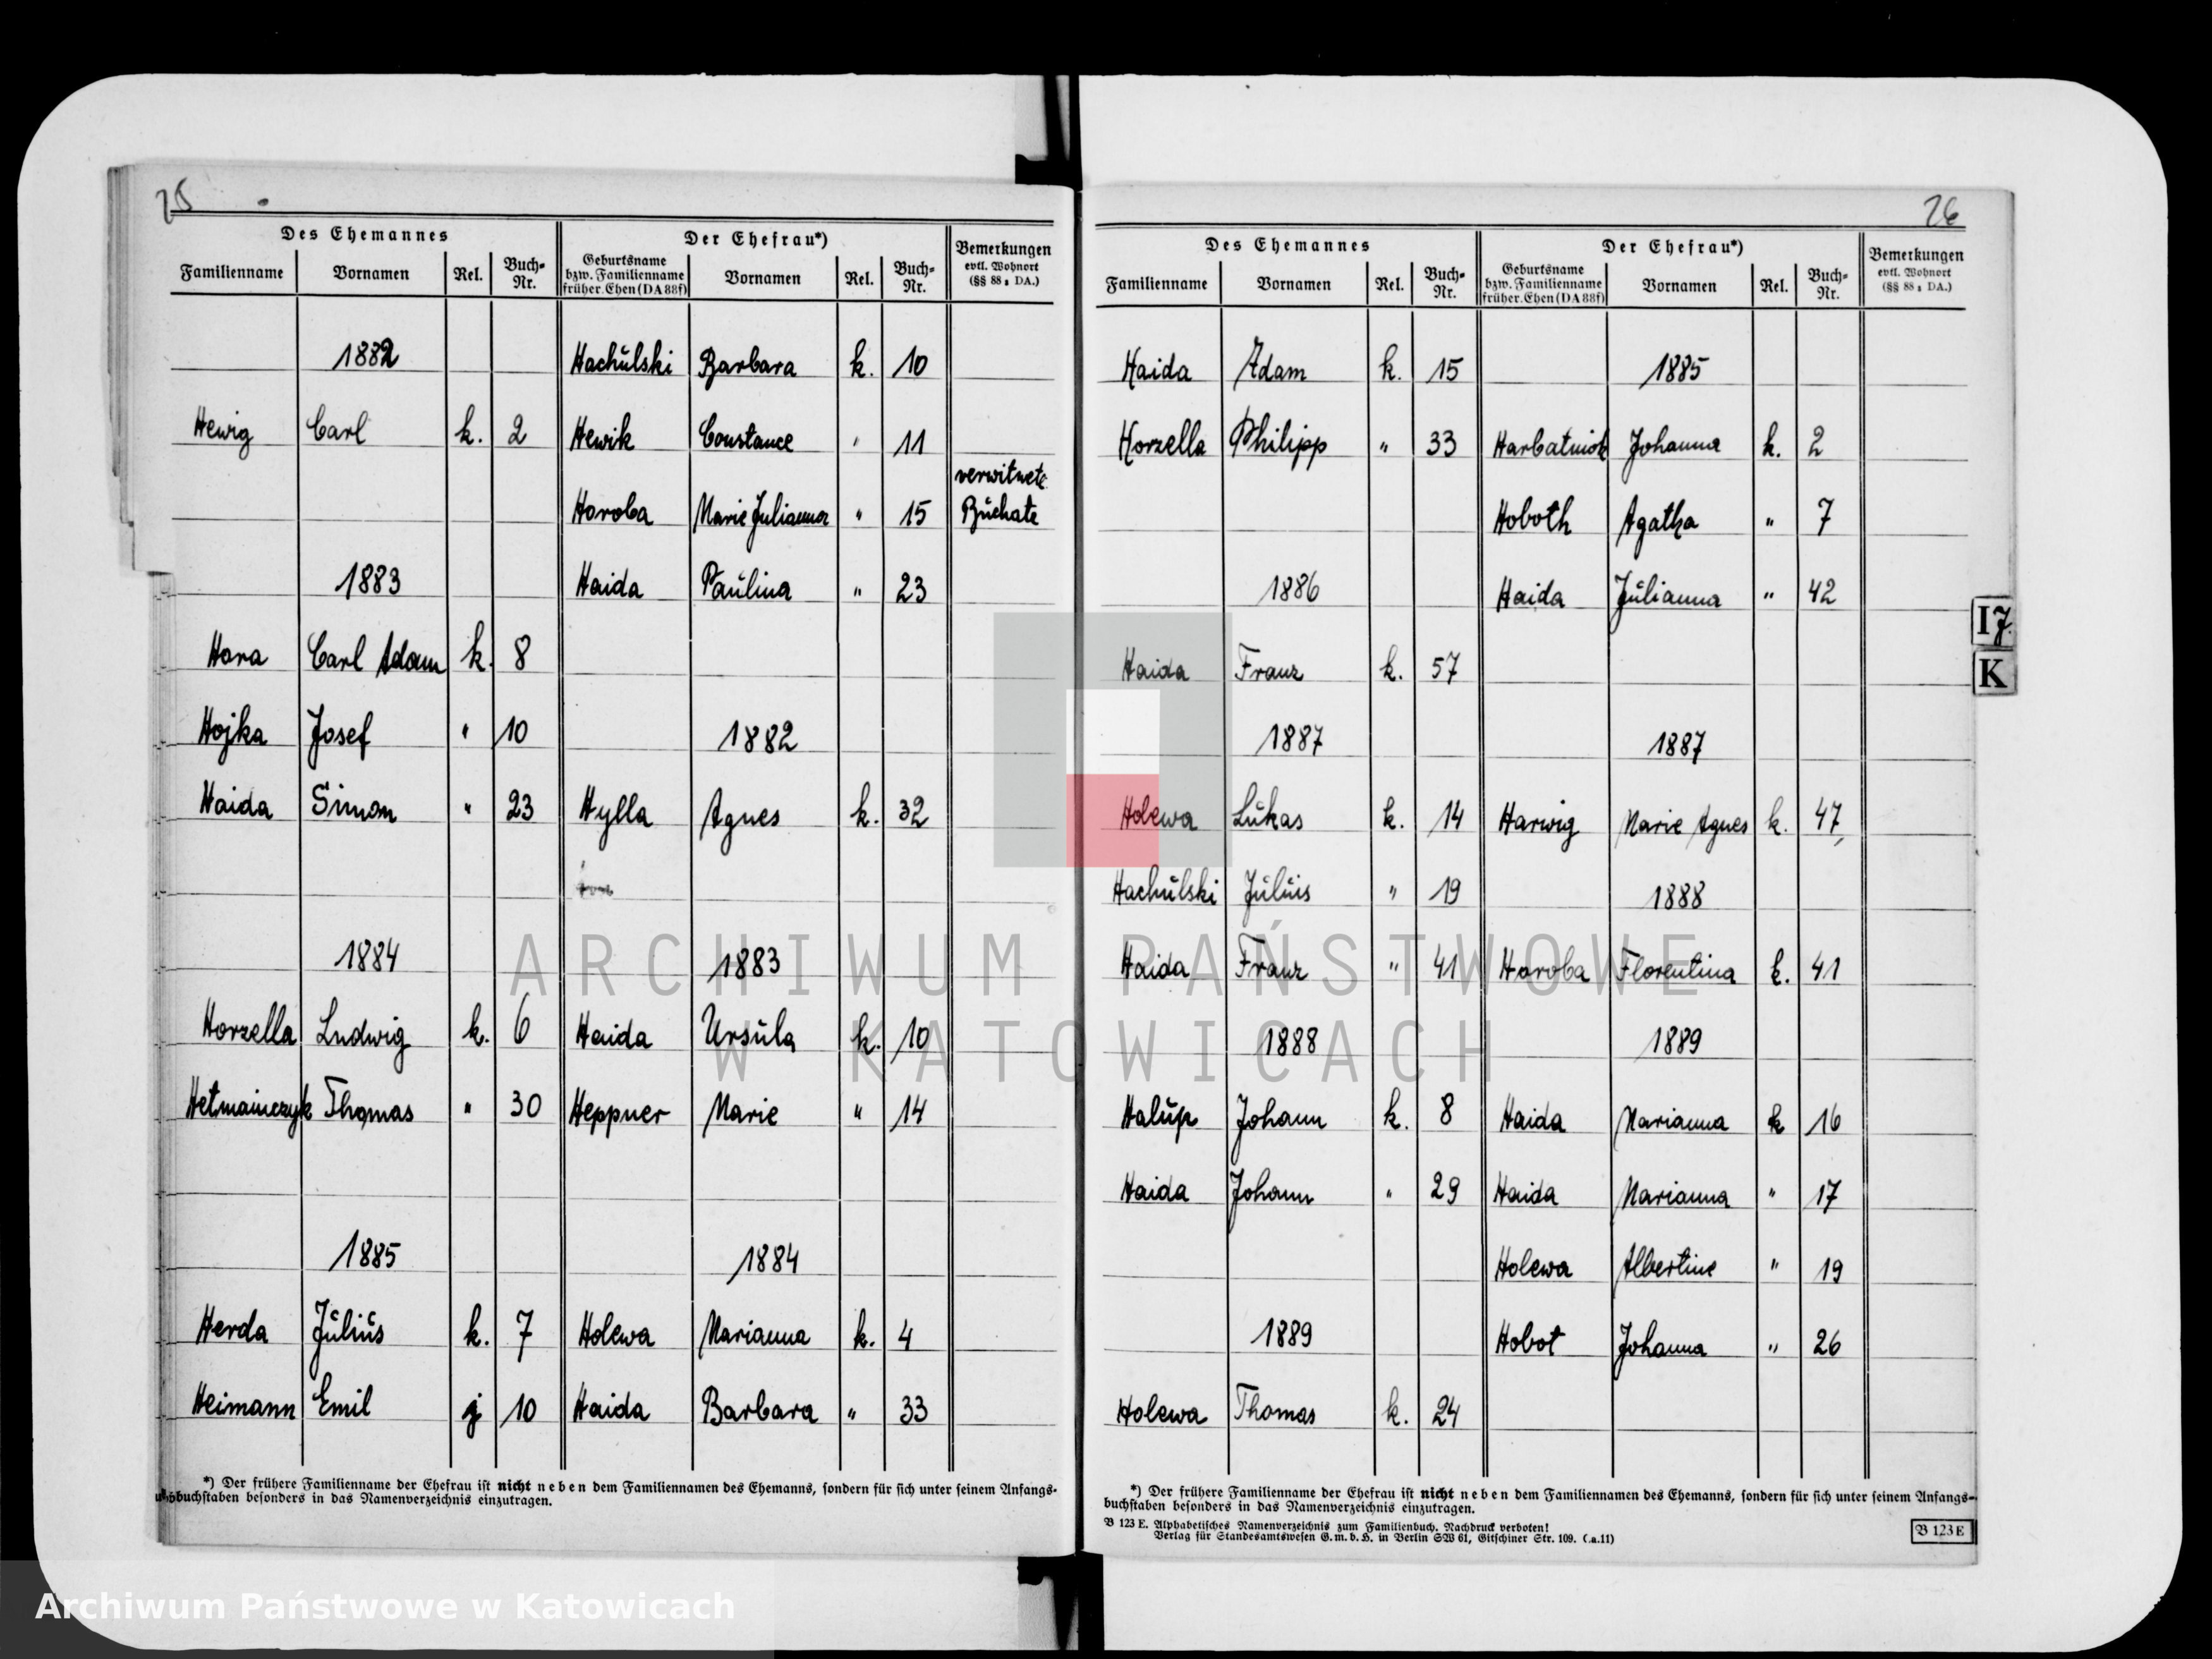 25
Des Ehemannes | Der Ehefrau*) | Bemerkungen evtl. Wohnort (§§ 88 s DA.)
Familienname | Vornamen | Rel. | Buch-Nr. | Geburtsname bzw. Familienname früher. Ehen (DA 88f) | Vornamen | Rel. | Buch-Nr.
1882 | Hachulski | Barbara | k. | 10
Hewig | Carl | k. | 2 | Hewik | Constance | " | 11
Horoba | Marie Julianna | " | 15 | verwitwete Buchate
1883 | Haida | Paulina | " | 23
Hora | Carl Adam | k. | 8
Hojka | Josef | " | 10 | 1882
Haida | Simon | " | 23 | Hylla | Agnes | k. | 32
1884 | 1883
Horzella | Ludwig | k. | 6 | Haida | Ursula | k. | 10
Hetmainczyk | Thomas | " | 30 | Heppner | Marie | " | 14
1885 | 1884
Herda | Julius | k. | 7 | Holewa | Marianna | k. | 4
Heimann | Emil | j | 10 | Haida | Barbara | " | 33
*) Der frühere Familienname der Ehefrau ist nicht neben dem Familiennamen des Ehemanns, sondern für sich unter seinem Anfangs-
buchstaben besonders in das Namenverzeichnis einzutragen.
26
Des Ehemannes | Der Ehefrau*) | Bemerkungen evtl. Wohnort (§§ 88 s DA.)
Familienname | Vornamen | Rel. | Buch-Nr. | Geburtsname bzw. Familienname früher. Ehen (DA 88f) | Vornamen | Rel. | Buch-Nr.
Haida | Adam | k. | 15 | 1885
Horzella | Philipp | " | 33 | Harbatniok | Johanna | k. | 2
Hoboth | Agatha | " | 7
1886 | Haida | Julianna | " | 42
Haida | Franz | k. | 57
1887 | 1887
Holewa | Lukas | k. | 14 | Harwig | Marie Agnes | k. | 47
Hachulski | Julius | " | 19 | 1888
Haida | Franz | " | 41 | Horoba | Florentina | k. | 41
1888 | 1889
Halup | Johann | k. | 8 | Haida | Marianna | k | 16
Haida | Johann | " | 29 | Haida | Marianna | " | 17
Holewa | Albertine | " | 19
1889 | Hobot | Johanna | " | 26
Holewa | Thomas | k. | 24
*) Der frühere Familienname der Ehefrau ist nicht neben dem Familiennamen des Ehemanns, sondern für sich unter seinem Anfangs-
buchstaben besonders in das Namenverzeichnis einzutragen.
B 123 E. Alphabetisches Namenverzeichnis zum Familienbuch. Nachdruck verboten!
Verlag für Standesamtswesen G. m. b. H. in Berlin SW 61, Gitschiner Str. 109. (.a.11)
B 123 E
IJ
K
ARCHIWUM PAŃSTWOWE
W KATOWICACH
Archiwum Państwowe w Katowicach